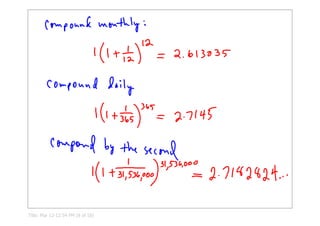 compound monthly:
1(1+1/12)^12 = 2.613035
compound daily
1(1+1/365)^365 = 2.7145
compound by the second
1(1+1/31,536,000)^31,536,000 = 2.7182824...
Title: Mar 12-12:54 PM (8 of 18)